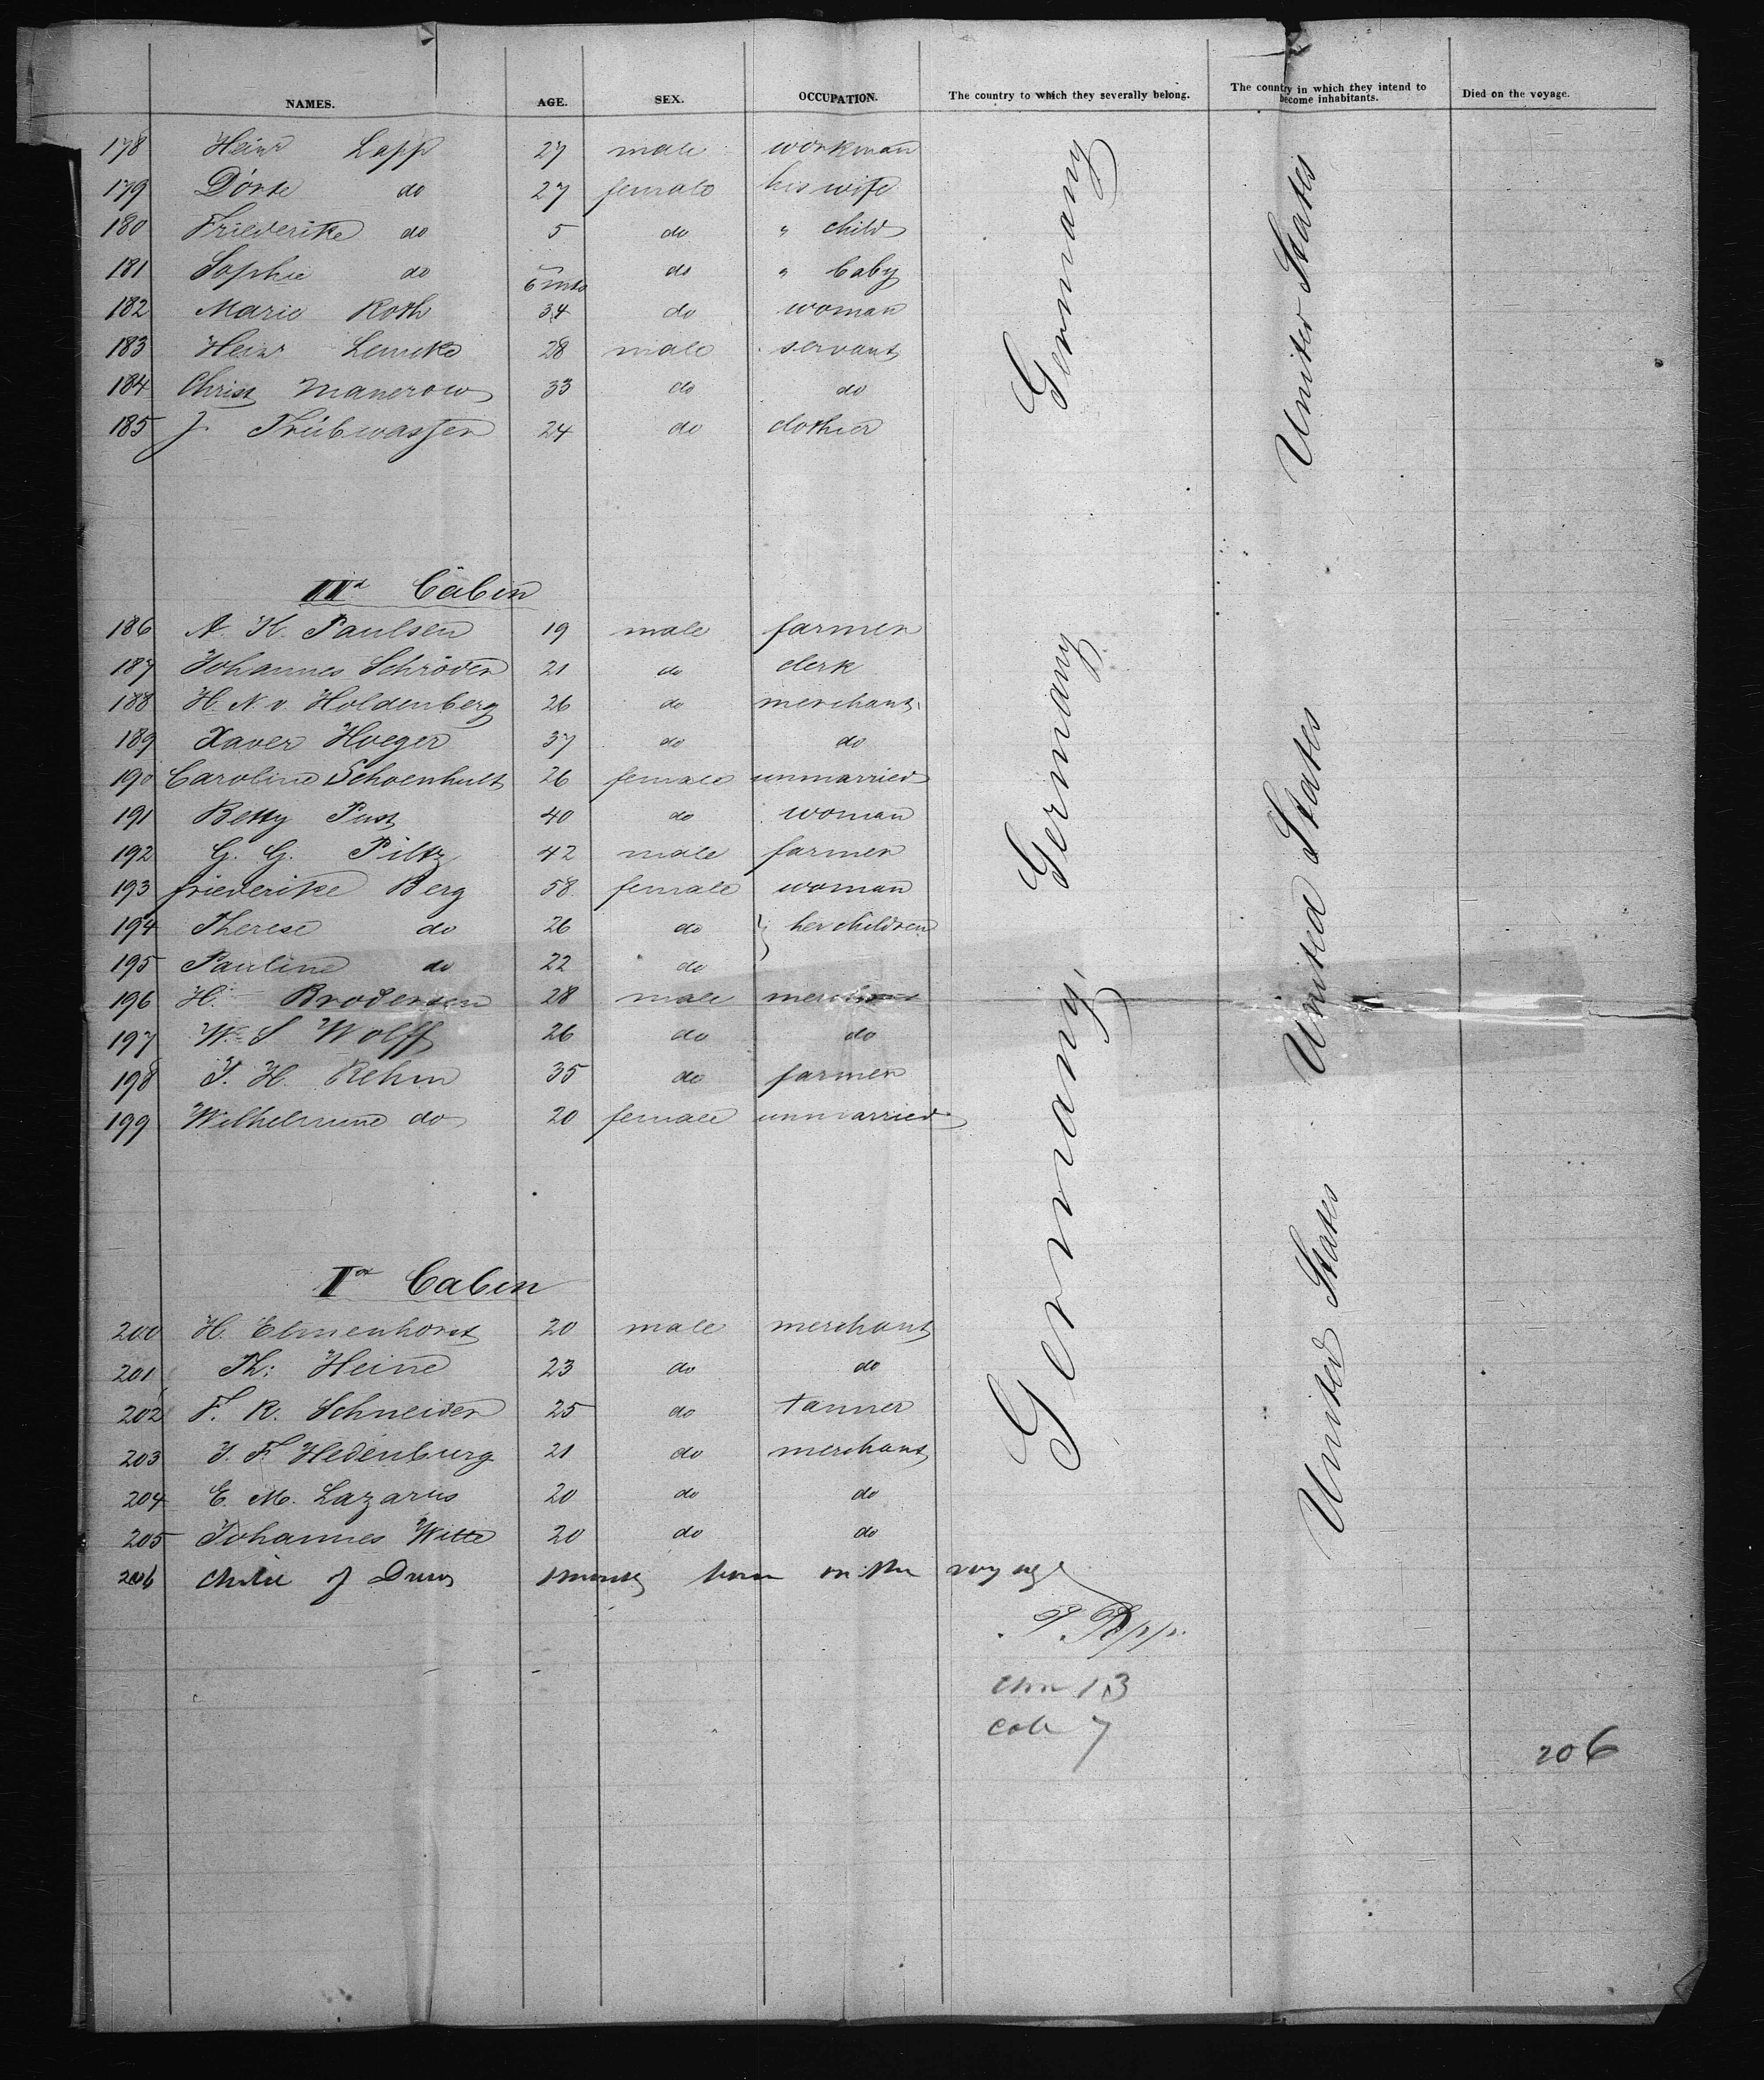 NAMES. AGE. SEX. OCCUPATION. The country to which they severally belong. The country in which they intend to become inhabitants. Died on the voyage.
178 Heinr Lapp 27 male workman
179 Dörte do 27 female his wife
180 Friederike do 5 do " child
181 Sophie do 6 mts do " baby
182 Marie Roth 34 do woman
183 Heinr Lemcke 28 male servant
184 Christ Manerow 33 do do
185 J. Trübwasser 24 do clothier
Germany United States
IId Cabin
186 A. H. Paulsen 19 male farmer
187 Johannes Schröder 21 do clerk
188 H. N. v. Holdenberg 26 do merchant
189 Xaver Hoeger 37 do do
190 Caroline Schoenhult 26 female unmarried
191 Betty Pust 40 do woman
192 G. G. Piltz 42 male farmer
193 friederike Berg 58 female woman
194 Therese do 26 do } her children
195 Pauline do 22 do
196 H. Brodersen 28 male merchant
197 W. S Wolff 26 do do
198 J. H. Rehm 35 do farmer
199 Wilhelmine do 20 female unmarried
Germany United States
I Cabin
200 H. Elmenhorst 20 male merchant
201 Th: Heine 23 do do
202 F. R. Schneider 25 do tanner
203 J. F. Hedenburg 21 do merchant
204 E. M. Lazarus 20 do do
205 Johannes Witte 20 do do
Germany, United States
206 child of born on the voyage
13
7
206